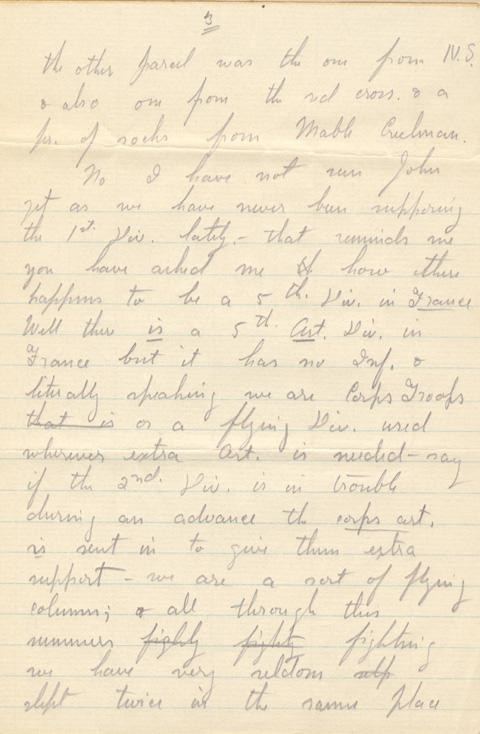 3
the other parcel was the one from N.S.
& also one from the red cross. & a
pr. of socks from Mable Creelman.
No I have not seen John
yet as we have never been supporing
the 1st. Div. lately. – that reminds me
you have asked me how there
happens to be a 5th. Div. in France
Well there is a 5th. Art. Div. in
France but it has no Inf. &
literally speaking we are Corps Troops
that is or a flying Div. used
wherever extra Art. is needed – say
if the 2nd. Div. is in trouble
during an advance the corps art.
is sent in to give them extra
support – we are a sort of flying
column; & all through this
summers fighly fighty fighting
we have very seldom slep
slept twice in the same place